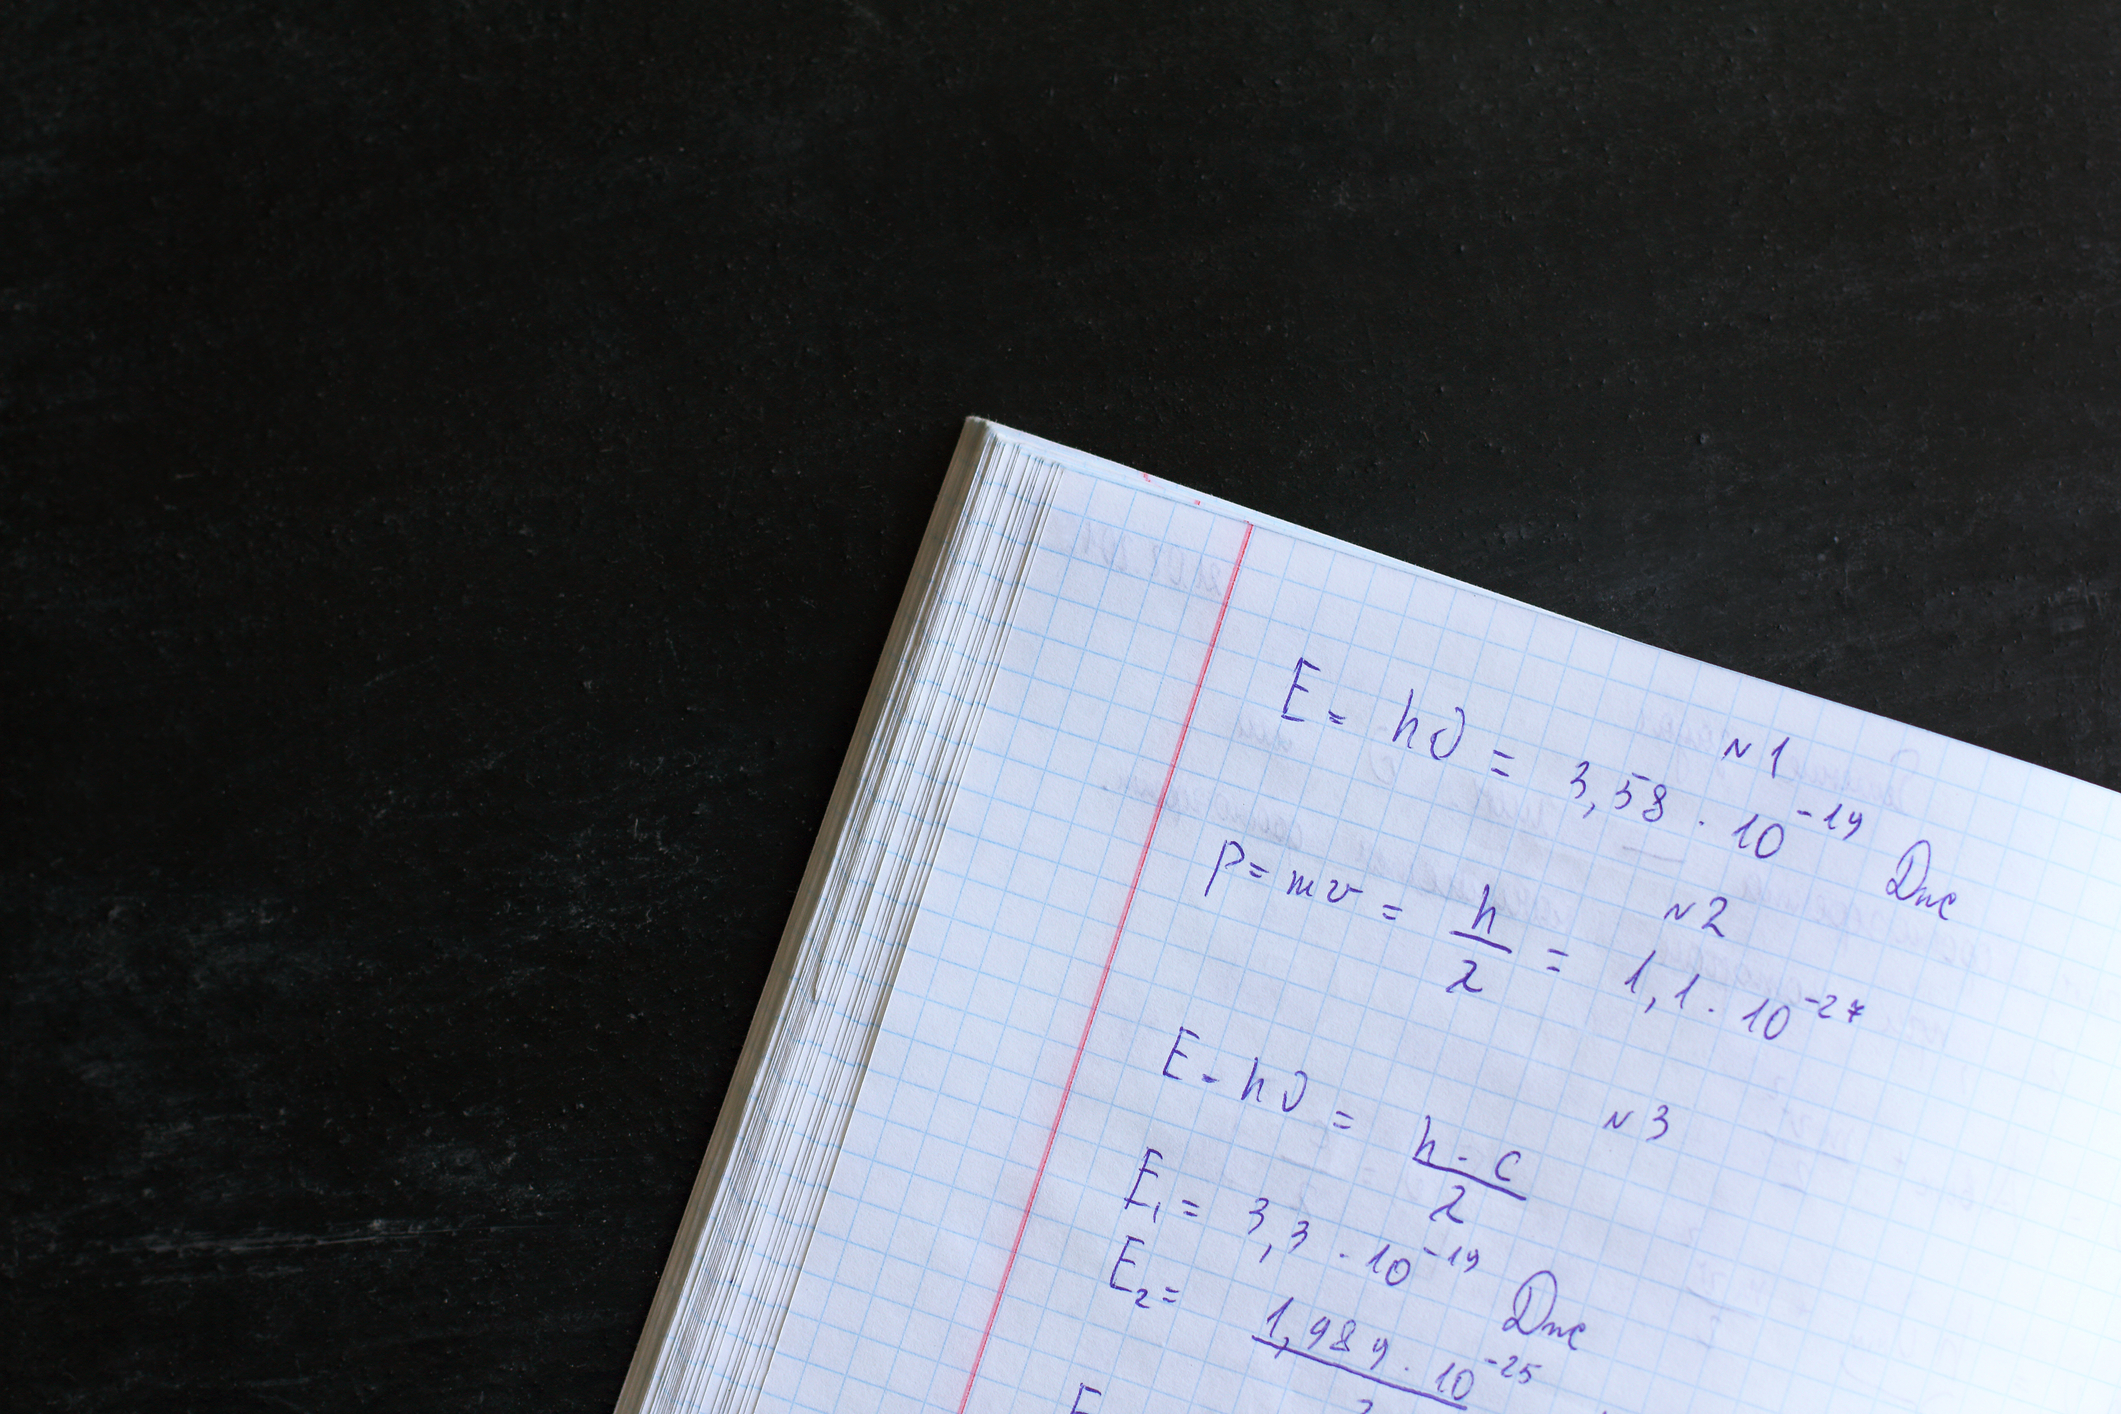 №1
E = hν = 3,58 · 10⁻¹⁹ Дж
№2
p = mv = h/λ = 1,1 · 10⁻²⁷
№3
E = hν = h · c/λ
E₁ = 3,3 · 10⁻¹⁹ Дж
E₂ = 1,989 · 10⁻²⁵
E